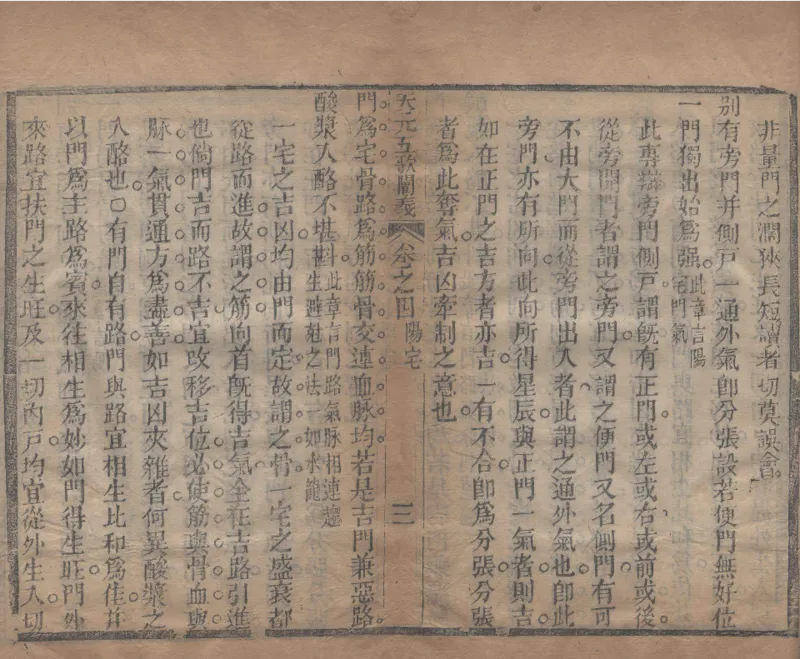 非量門之濶狹長短讀者切莫誤會
別有旁門并側戸一通外氣卽分張設若便門無好位
一門獨出始爲强此章言陽宅門氣
此專辯旁門側戸謂旣有正門或左或右或前或後
從旁開門者謂之旁門又謂之便門又名側門有可
不由大門而從旁門出入者此謂之通外氣也卽此
旁門亦有所向此向所得星辰與正門一氣者則吉
如在正門之吉方者亦吉一有不合卽爲分張分張
者爲此奪氣吉凶牽制之意也
天元五歌闡義 卷之四 陽宅 三
門爲宅骨路爲筋筋骨交連血脉均若是吉門兼惡路
酸漿入酪不堪斟此章言門路氣脉相連趨生避尅之法一如水龍
一宅之吉凶均由門而定故謂之骨一宅之盛衰都
從路而進故謂之筋向首旣得吉氣全在吉路引進
也倘門吉而路不吉宜改移吉位必使筋與骨血與
脉一氣貫通方爲盡善如吉凶夾雜者何異酸漿之
入酪也〇有門自有路門與路宜相生比和爲佳并
以門爲主路爲賓來往相生爲妙如門得生旺門外
來路宜扶門之生旺及一切內戸均宜從外生入切